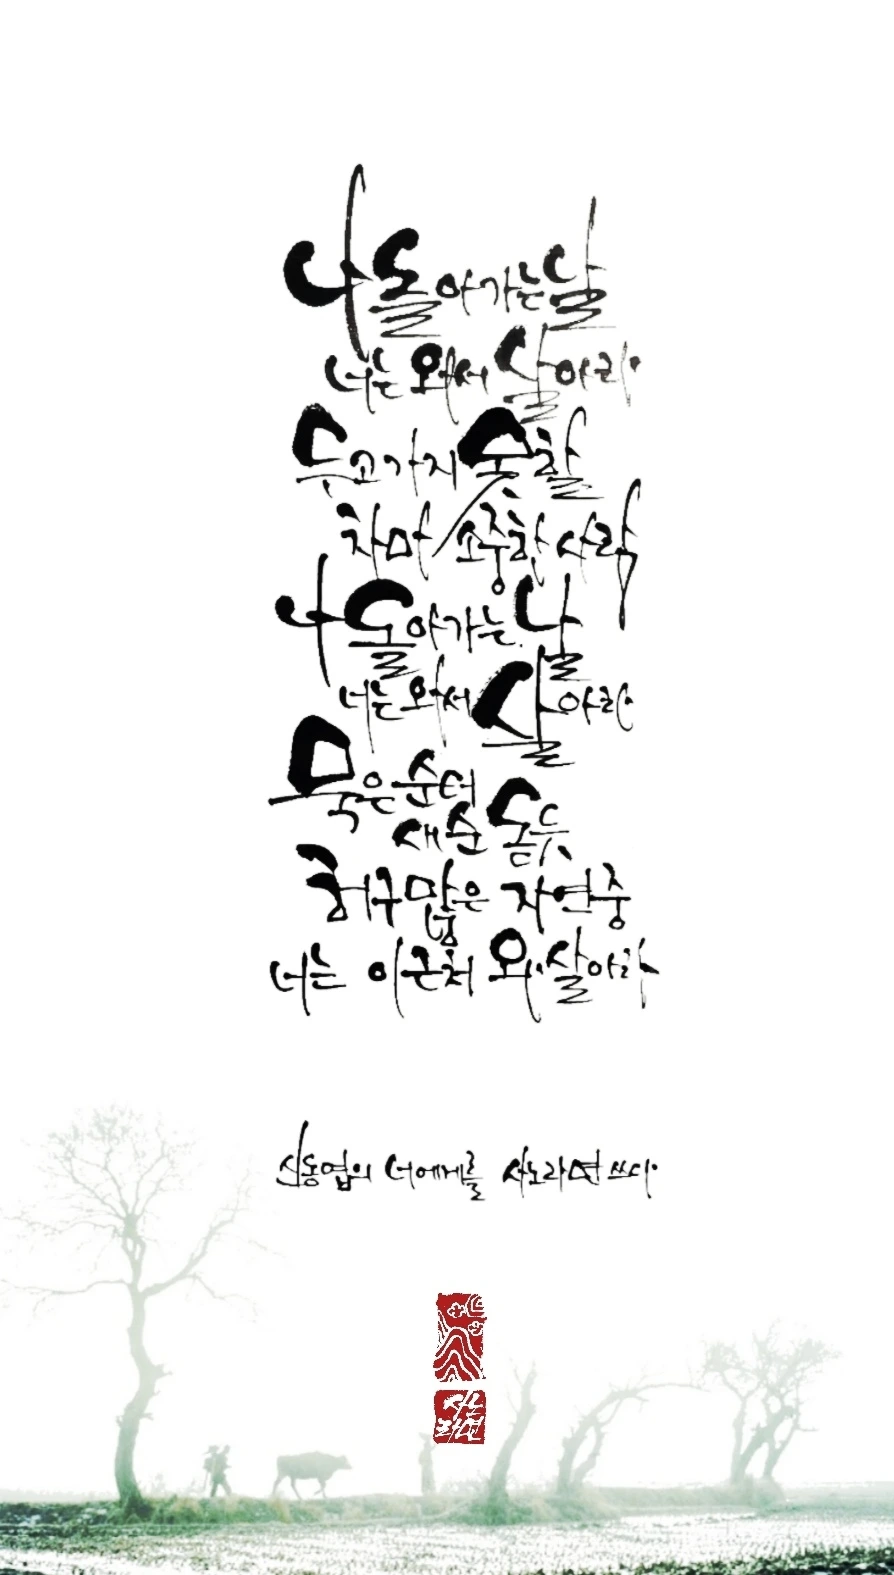 나 돌아가는 날
너는 와서 살아라
두고 가지 못할
차마 소중한 사람
나 돌아가는 날
너는 와서 살아라
묵은 순터
새순 돋듯
허구많은 자연중
너는 이 근처 와 살아라
신동엽의 너에게를 사노라면 쓰다
사노라면